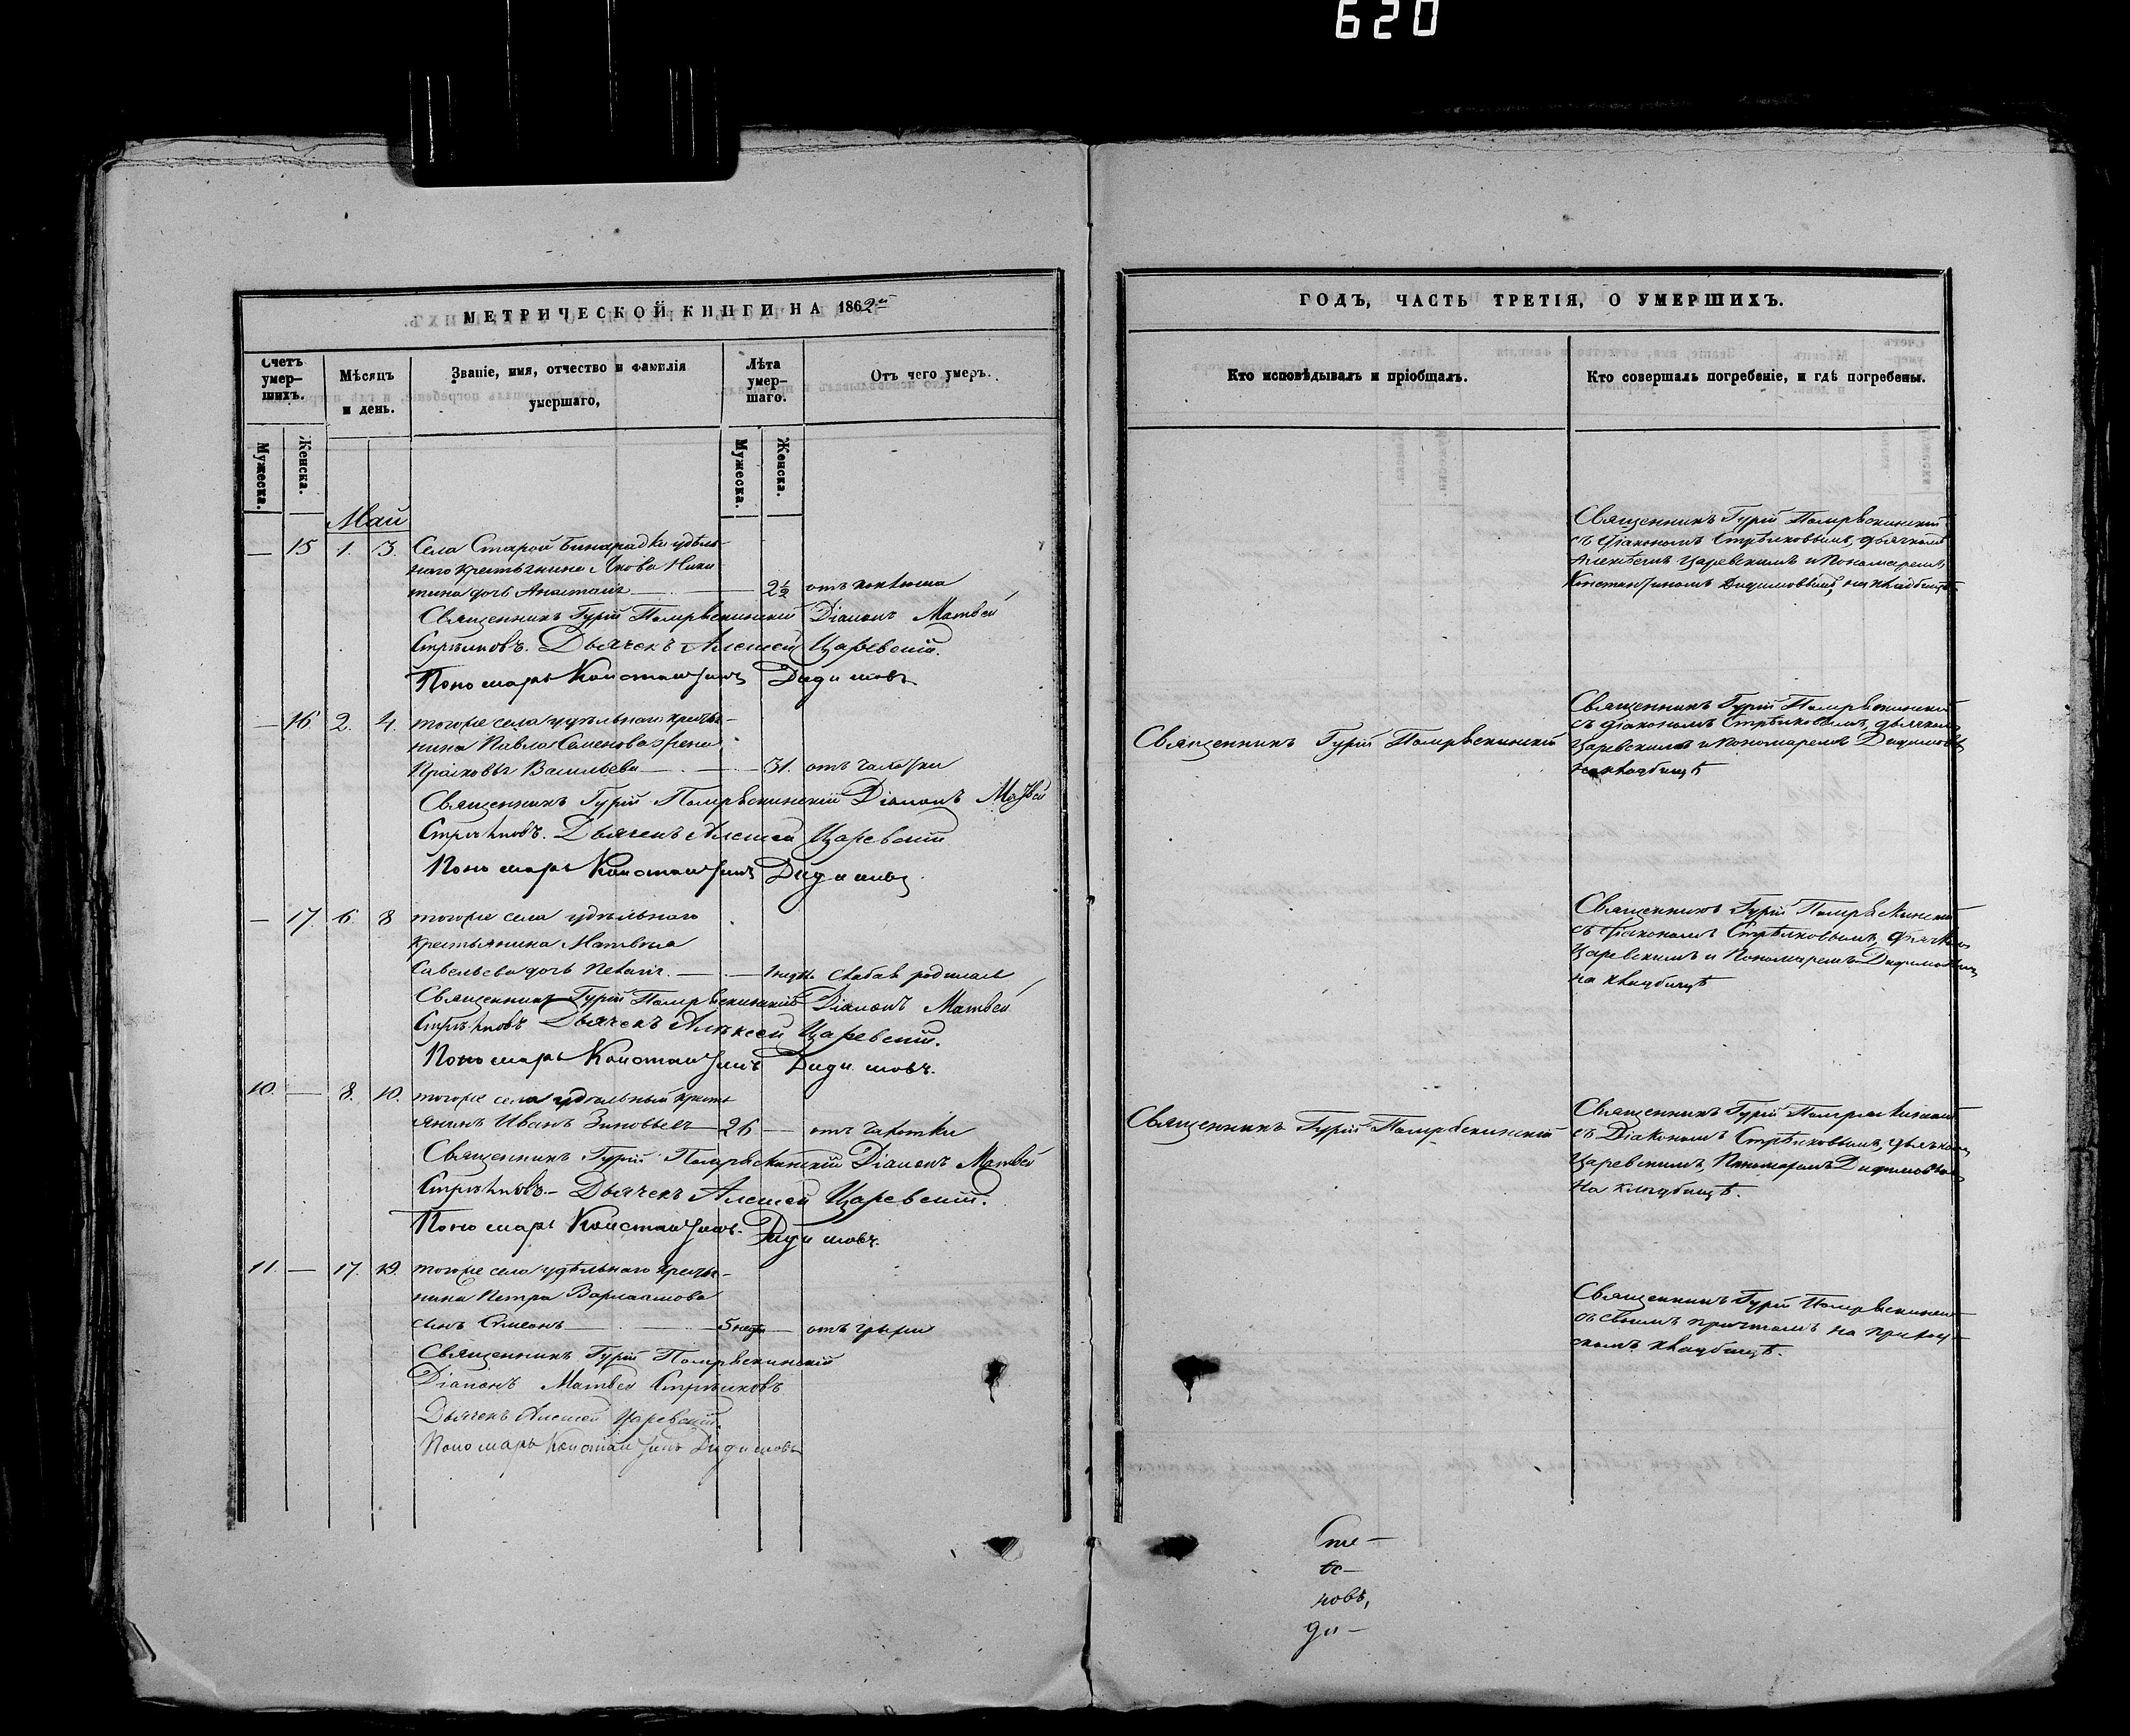 620
МЕТРИЧЕСКОЙ КНИГИ НА 1862й
Счетъ умер-шихъ.
Мѣсяцъ и день.
Званіе, имя, отчество и фамилія умершаго,
Лѣта умер-шаго.
Отъ чего умеръ.
Мужеска.
Женска.
Мужеска.
Женска.
Май
— 15 1. 3. Села Старой Бинарадки удѣль-
наго крестьянина Якова Ники
тина дочь Анастасія — 2½ отъ коклюша
Священникъ Гурій Діаконъ Матвей
Стрѣлковъ. Дьячекъ Алексей Царевскій.
Пономарь Константинъ Дидимовъ
— 16 2. 4. тогоже села удѣльнаго кресть-
нина Павла Семенова жена
Васильева — 31. отъ чахотки
Священникъ Гурій Діаконъ Матвей
Стрѣлковъ. Дьячекъ Алексей Царевскій
Пономарь Константинъ Дидимовъ
— 17. 6. 8 тогоже села удѣльнаго
крестьянина Матвѣя
Савельева дочь — слабая родилась
Священникъ Гурій Діаконъ Матвей
Стрѣлковъ Дьячекъ Алексей Царевскій.
Пономарь Константинъ Дидимовъ.
10. — 8. 10. тогоже села удѣльный кресть
янинъ Иванъ Зиновьевъ — 26 — отъ чахотки
Священникъ Гурій Діаконъ Матвей
Стрѣлковъ. — Дьячекъ Алексей Царевскій.
Пономарь Константинъ Дидимовъ.
11. — 17. 19. тогоже села удѣльнаго кресть-
нина Петра Варлаамова
сынъ Симеонъ — 5 — отъ грыжи
Священникъ Гурій
Діаконъ Матвей Стрѣлковъ
Дьячекъ Алексей Царевскій.
Пономарь Константинъ Дидимовъ
ГОДЪ, ЧАСТЬ ТРЕТІЯ, О УМЕРШИХЪ.
Кто исповѣдывалъ и пріобщалъ.
Кто совершалъ погребеніе, и гдѣ погребены.
Священникъ Гурій
съ діакономъ Стрѣлковымъ, дьячкомъ
Алексѣемъ Царевскимъ и Пономаремъ
Константиномъ Дидимовымъ, на кладбищѣ.
Священникъ Гурій
Священникъ Гурій
съ діакономъ Стрѣлковымъ, дьячкомъ
Царевскимъ и пономаремъ Дидимовым
на кладбищѣ
Священникъ Гурій
съ діакономъ Стрѣлковымъ, дьячком
Царевскимъ и Пономаремъ Дидимовым
на кладбищѣ
Священникъ Гурій
Священникъ Гурій
съ Діакономъ Стрѣлковымъ, дьячком
Царевскимъ, Пономаремъ Дидимовым
на кладбищѣ.
Священникъ Гурій
съ своимъ причтомъ на приход-
скомъ кладбищѣ.
новъ,